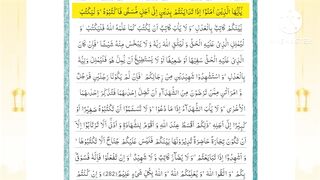 يٰٓاَيُّهَا الَّذِيْنَ اٰمَنُوْٓا اِذَا تَدَايَنْتُمْ بِدَيْنٍ اِلٰٓى اَجَلٍ مُّسَمًّى فَاكْتُبُوْهُ ؕ وَ لْيَكْتُبْ
بَّيْنَكُمْ كَاتِبٌۢ بِالْعَدْلِ ۪ وَ لَا يَاْبَ كَاتِبٌ اَنْ يَّكْتُبَ كَمَا عَلَّمَهُ اللّٰهُ فَلْيَكْتُبْ ۚ وَ
لْيُمْلِلِ الَّذِيْ عَلَيْهِ الْحَقُّ وَ لْيَتَّقِ اللّٰهَ رَبَّهٗ وَ لَا يَبْخَسْ مِنْهُ شَيْـًٔا ؕ فَاِنْ كَانَ
الَّذِيْ عَلَيْهِ الْحَقُّ سَفِيْهًا اَوْ ضَعِيْفًا اَوْ لَا يَسْتَطِيْعُ اَنْ يُّمِلَّ هُوَ فَلْيُمْلِلْ وَلِيُّهٗ
بِالْعَدْلِ ؕ وَ اسْتَشْهِدُوْا شَهِيْدَيْنِ مِنْ رِّجَالِكُمْ ۚ فَاِنْ لَّمْ يَكُوْنَا رَجُلَيْنِ فَرَجُلٌ
وَّ امْرَاَتٰنِ مِمَّنْ تَرْضَوْنَ مِنَ الشُّهَدَآءِ اَنْ تَضِلَّ اِحْدٰىهُمَا فَتُذَكِّرَ اِحْدٰىهُمَا
الْاُخْرٰى ؕ وَ لَا يَاْبَ الشُّهَدَآءُ اِذَا مَا دُعُوْا ؕ وَ لَا تَسْـَٔمُوْٓا اَنْ تَكْتُبُوْهُ صَغِيْرًا اَوْ
كَبِيْرًا اِلٰٓى اَجَلِهٖ ؕ ذٰلِكُمْ اَقْسَطُ عِنْدَ اللّٰهِ وَ اَقْوَمُ لِلشَّهَادَةِ وَ اَدْنٰٓى اَلَّا تَرْتَابُوْٓا اِلَّآ
اَنْ تَكُوْنَ تِجَارَةً حَاضِرَةً تُدِيْرُوْنَهَا بَيْنَكُمْ فَلَيْسَ عَلَيْكُمْ جُنَاحٌ اَلَّا تَكْتُبُوْهَا ؕ
وَ اَشْهِدُوْٓا اِذَا تَبَايَعْتُمْ ۪ وَ لَا يُضَآرَّ كَاتِبٌ وَّ لَا شَهِيْدٌ ؕ۬ وَ اِنْ تَفْعَلُوْا فَاِنَّهٗ فُسُوْقٌۢ
بِكُمْ ؕ وَ اتَّقُوا اللّٰهَ ؕ وَ يُعَلِّمُكُمُ اللّٰهُ ؕ وَ اللّٰهُ بِكُلِّ شَيْءٍ عَلِيْمٌ (282) وَ اِنْ كُنْتُمْ